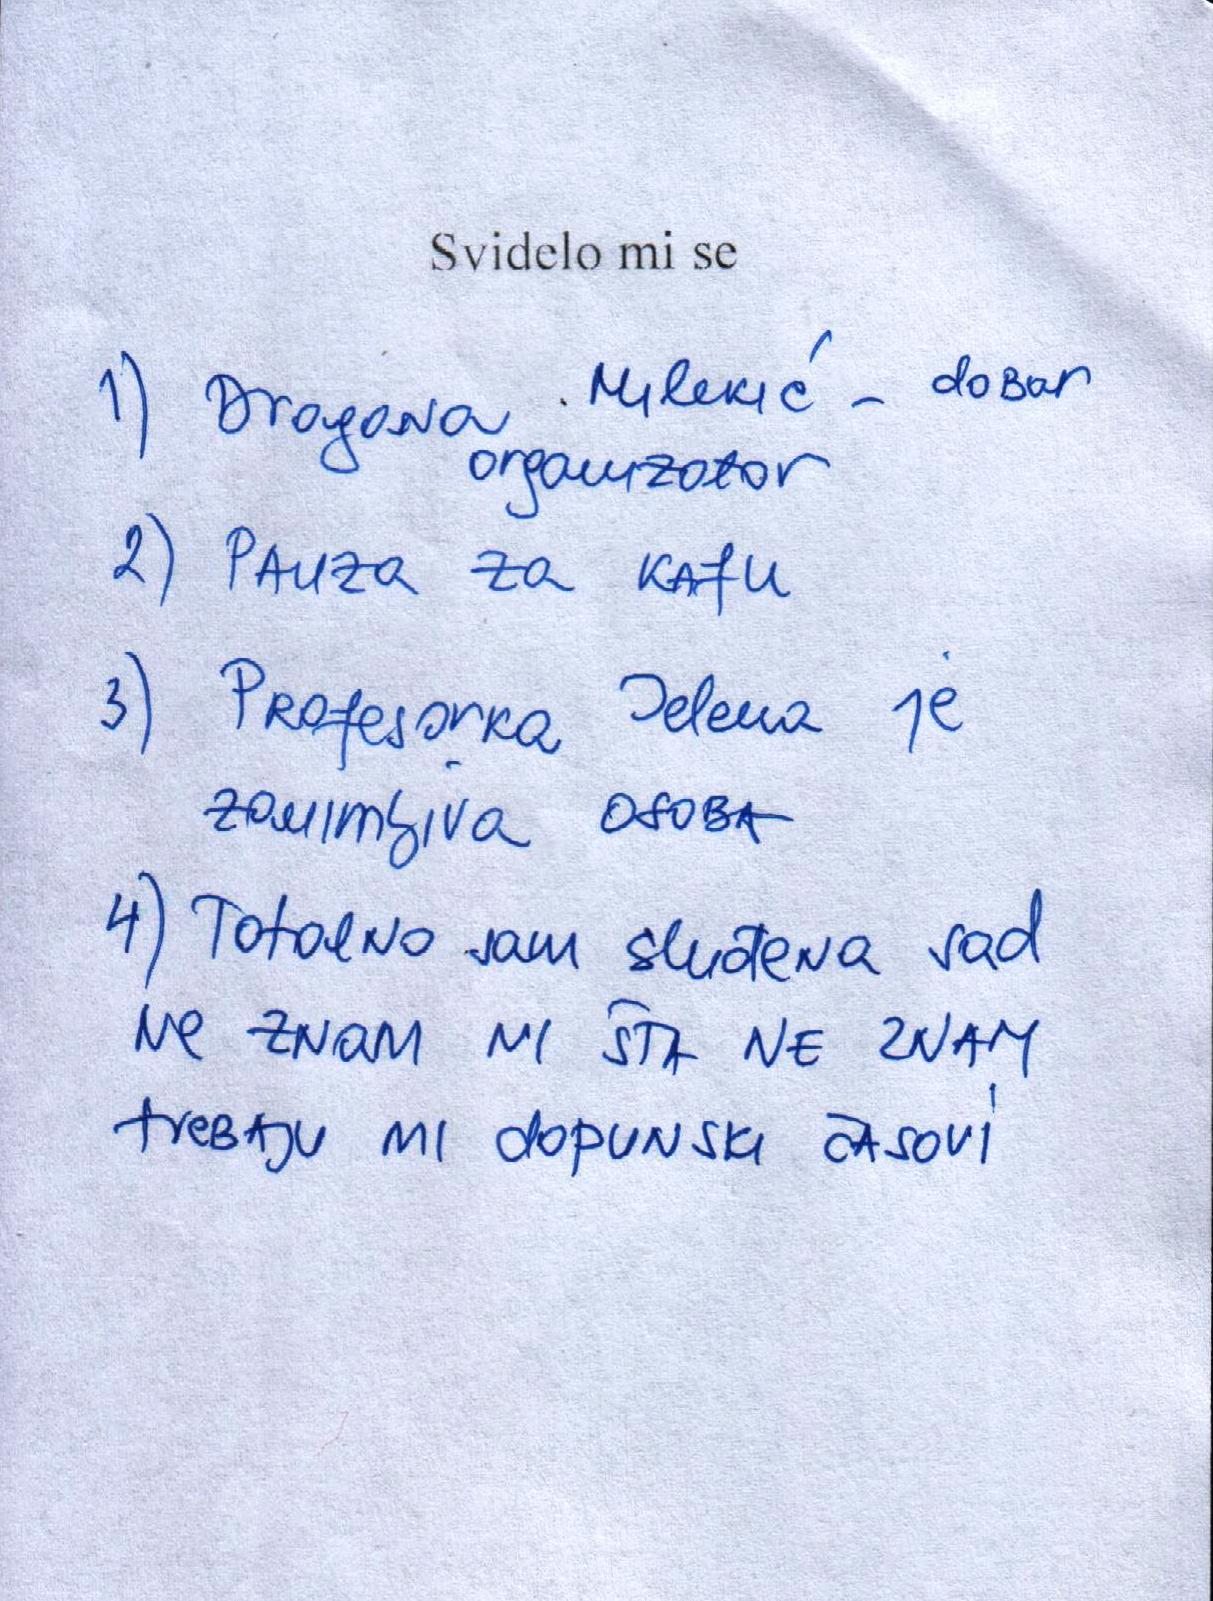 Svidelo mi se
1) Dragana Milekić - dobar
organizator
2) PAUZA za KAfU
3) Profesorka Jelena je
zanimljiva OSOBA
4) Totalno sam sluđena sad
Ne ZNAM NI ŠTA NE ZNAM
trebAJU MI dopunski ČASOVI